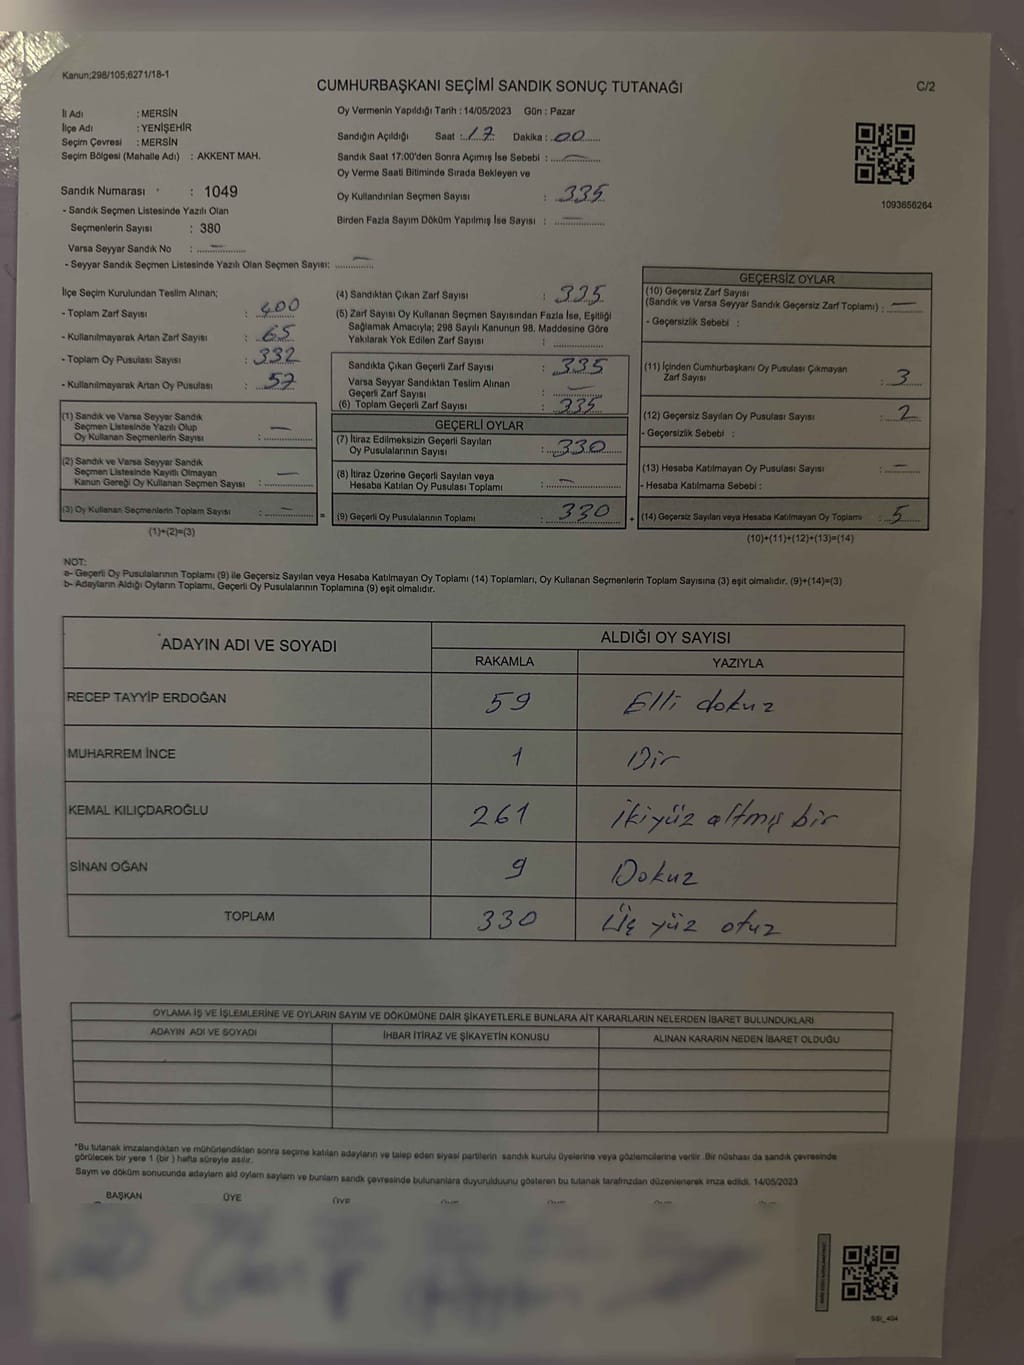 Kanun;298/105;6271/18-1
CUMHURBAŞKANI SEÇİMİ SANDIK SONUÇ TUTANAĞI
C/2
İl Adı : MERSİN
İlçe Adı : YENİŞEHİR
Seçim Çevresi : MERSİN
Seçim Bölgesi (Mahalle Adı) : AKKENT MAH.
Sandık Numarası : 1049
- Sandık Seçmen Listesinde Yazılı Olan
Seçmenlerin Sayısı : 380
Varsa Seyyar Sandık No : —
- Seyyar Sandık Seçmen Listesinde Yazılı Olan Seçmen Sayısı: —
Oy Vermenin Yapıldığı Tarih : 14/05/2023 Gün : Pazar
Sandığın Açıldığı Saat : 17 Dakika : 00
Sandık Saat 17:00'den Sonra Açımış İse Sebebi : —
Oy Verme Saati Bitiminde Sırada Bekleyen ve
Oy Kullandırılan Seçmen Sayısı : 335
Birden Fazla Sayım Döküm Yapılmış İse Sayısı : —
1093656264
İlçe Seçim Kurulundan Teslim Alınan;
- Toplam Zarf Sayısı : 400
- Kullanılmayarak Artan Zarf Sayısı : 65
- Toplam Oy Pusulası Sayısı : 332
- Kullanılmayarak Artan Oy Pusulası : 57
(1) Sandık ve Varsa Seyyar Sandık
Seçmen Listesinde Yazılı Olup
Oy Kullanan Seçmenlerin Sayısı : —
(2) Sandık ve Varsa Seyyar Sandık
Seçmen Listesinde Kayıtlı Olmayan
Kanun Gereği Oy Kullanan Seçmen Sayısı : —
(3) Oy Kullanan Seçmenlerin Toplam Sayısı : —
(1)+(2)=(3)
(4) Sandıktan Çıkan Zarf Sayısı : 335
(5) Zarf Sayısı Oy Kullanan Seçmen Sayısından Fazla İse, Eşitliği
Sağlamak Amacıyla; 298 Sayılı Kanunun 98. Maddesine Göre
Yakılarak Yok Edilen Zarf Sayısı :
Sandıkta Çıkan Geçerli Zarf Sayısı : 335
Varsa Seyyar Sandıktan Teslim Alınan
Geçerli Zarf Sayısı : —
(6) Toplam Geçerli Zarf Sayısı : 335
GEÇERLİ OYLAR
(7) İtiraz Edilmeksizin Geçerli Sayılan
Oy Pusulalarının Sayısı : 330
(8) İtiraz Üzerine Geçerli Sayılan veya
Hesaba Katılan Oy Pusulası Toplamı : —
= (9) Geçerli Oy Pusulalarının Toplamı : 330
GEÇERSİZ OYLAR
(10) Geçersiz Zarf Sayısı
(Sandık ve Varsa Seyyar Sandık Geçersiz Zarf Toplamı) : —
- Geçersizlik Sebebi :
(11) İçinden Cumhurbaşkanı Oy Pusulası Çıkmayan
Zarf Sayısı : 3
(12) Geçersiz Sayılan Oy Pusulası Sayısı : 2
- Geçersizlik Sebebi :
(13) Hesaba Katılmayan Oy Pusulası Sayısı : —
- Hesaba Katılmama Sebebi :
+ (14) Geçersiz Sayılan veya Hesaba Katılmayan Oy Toplamı : 5
(10)+(11)+(12)+(13)=(14)
NOT:
a- Geçerli Oy Pusulalarının Toplamı (9) ile Geçersiz Sayılan veya Hesaba Katılmayan Oy Toplamı (14) Toplamları, Oy Kullanan Seçmenlerin Toplam Sayısına (3) eşit olmalıdır. (9)+(14)=(3)
b- Adayların Aldığı Oyların Toplamı, Geçerli Oy Pusulalarının Toplamına (9) eşit olmalıdır.
ADAYIN ADI VE SOYADI
ALDIĞI OY SAYISI
RAKAMLA YAZIYLA
RECEP TAYYİP ERDOĞAN 59 Elli dokuz
MUHARREM İNCE 1 Bir
KEMAL KILIÇDAROĞLU 261 İkiyüz altmış bir
SİNAN OĞAN 9 Dokuz
TOPLAM 330 Üç yüz otuz
OYLAMA İŞ VE İŞLEMLERİNE VE OYLARIN SAYIM VE DÖKÜMÜNE DAİR ŞİKAYETLERLE BUNLARA AİT KARARLARIN NELERDEN İBARET BULUNDUKLARI
ADAYIN ADI VE SOYADI İHBAR İTİRAZ VE ŞİKAYETİN KONUSU ALINAN KARARIN NEDEN İBARET OLDUĞU
*Bu tutanak imzalandıktan ve mühürlendikten sonra seçime katılan adayların ve talep eden siyasi partilerin sandık kurulu üyelerine veya gözlemcilerine verilir. Bir nüshası da sandık çevresinde
görülecek bir yere 1 (bir ) hafta süreyle asılır.
Sayım ve döküm sonucunda adayların ald oyların sayları ve bunların sandk çevresinde bulunanlara duyurulduunu gösteren bu tutanak tarafmzdan düzenlenerek imza edildi. 14/05/2023
BAŞKAN ÜYE ÜYE
SSI_404